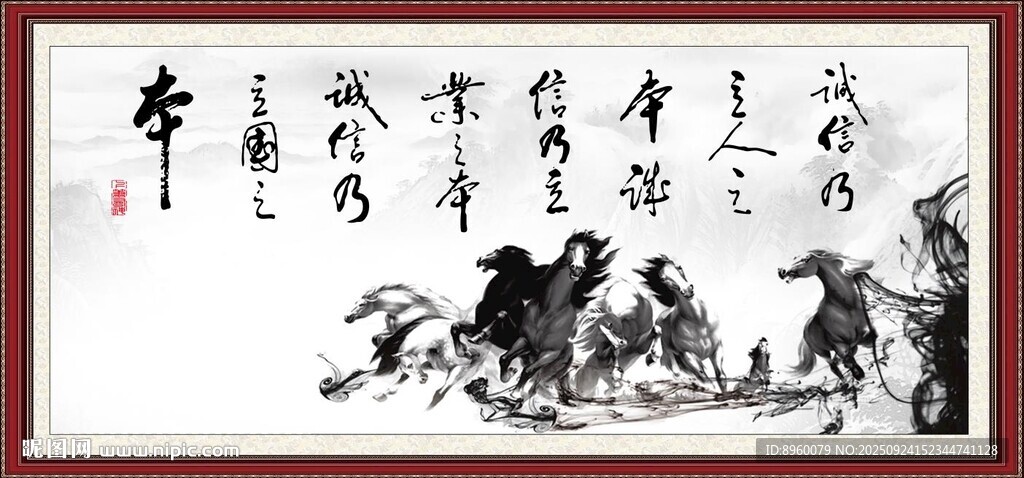 誠信乃
立人之
本誠
信乃立
業之本
誠信乃
立國之
本
昵图网 www.nipic.com
ID:8960079 NO:20250924152344741128